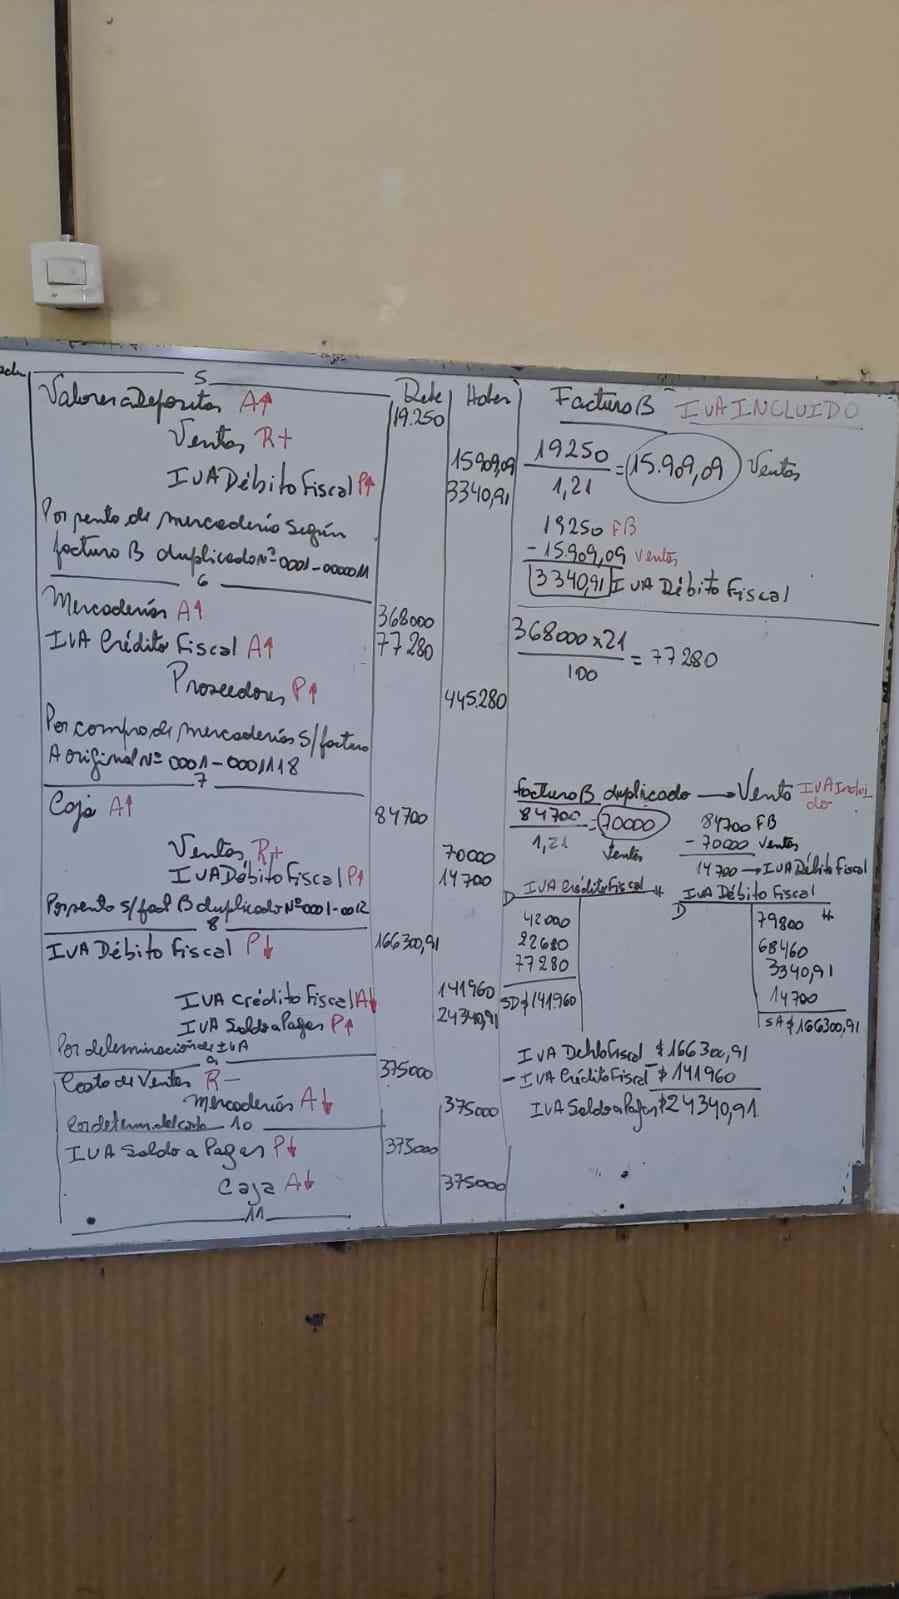 5
Debe Haber
Valores a Depositar A↑ 19.250
Ventas R+ 15909,09
IVA Débito Fiscal P↑ 3340,91
Por venta de mercadería según
factura B duplicado Nº 0001-0000011
6
Mercaderías A↑ 368000
IVA Crédito Fiscal A↑ 77280
Proveedores P↑ 445.280
Por compra de mercaderías s/factura
A original Nº 0001-0001118
7
Caja A↑ 84700
Ventas R+ 70000
IVA Débito Fiscal P↑ 14700
Por venta s/fact B duplicado Nº 0001-0012
8
IVA Débito Fiscal P↓ 166300,91
IVA Crédito Fiscal A↓ 141960
IVA Saldo a Pagar P↑ 24340,91
Por determinación de IVA
9
Costo de Ventas R- 375000
Mercaderías A↓ 375000
Por determ. del costo 10
IVA Saldo a Pagar P↓ 375000
Caja A↓ 375000
11
Factura B IVA INCLUIDO
19250
1,21
= 15.909,09 Ventas
19250 FB
- 15.909,09 Ventas
3340,91 IVA Débito Fiscal
368000 x 21
100
= 77280
Factura B duplicado → Venta IVA Inclui
do
84700
1,21
= 70000
Ventas
84700 FB
- 70000 Ventas
14700 → IVA Débito Fiscal
D IVA Crédito Fiscal H
42000
22680
77280
SD $ 141960
IVA Débito Fiscal
D H
79800
68460
3340,91
14700
SA $ 166300,91
IVA Débito Fiscal $ 166300,91
- IVA Crédito Fiscal - $ 141960
IVA Saldo a Pagar $ 24340,91